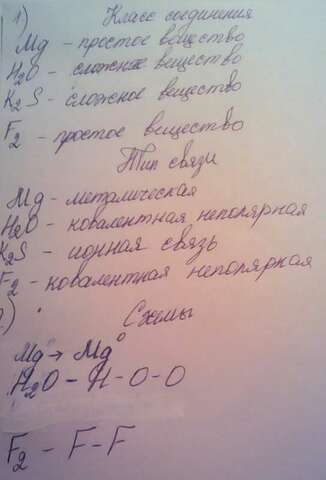 1) Класс соединения
Mg - простое вещество
H2O - сложное вещество
K2S - сложное вещество
F2 - простое вещество
Тип связи
Mg - металическая
H2O - ковалентная неполярная
K2S - ионная связь
F2 - ковалентная неполярная
2) Схемы
Mg → Mg0
H2O - H-O-O
F2 - F-F